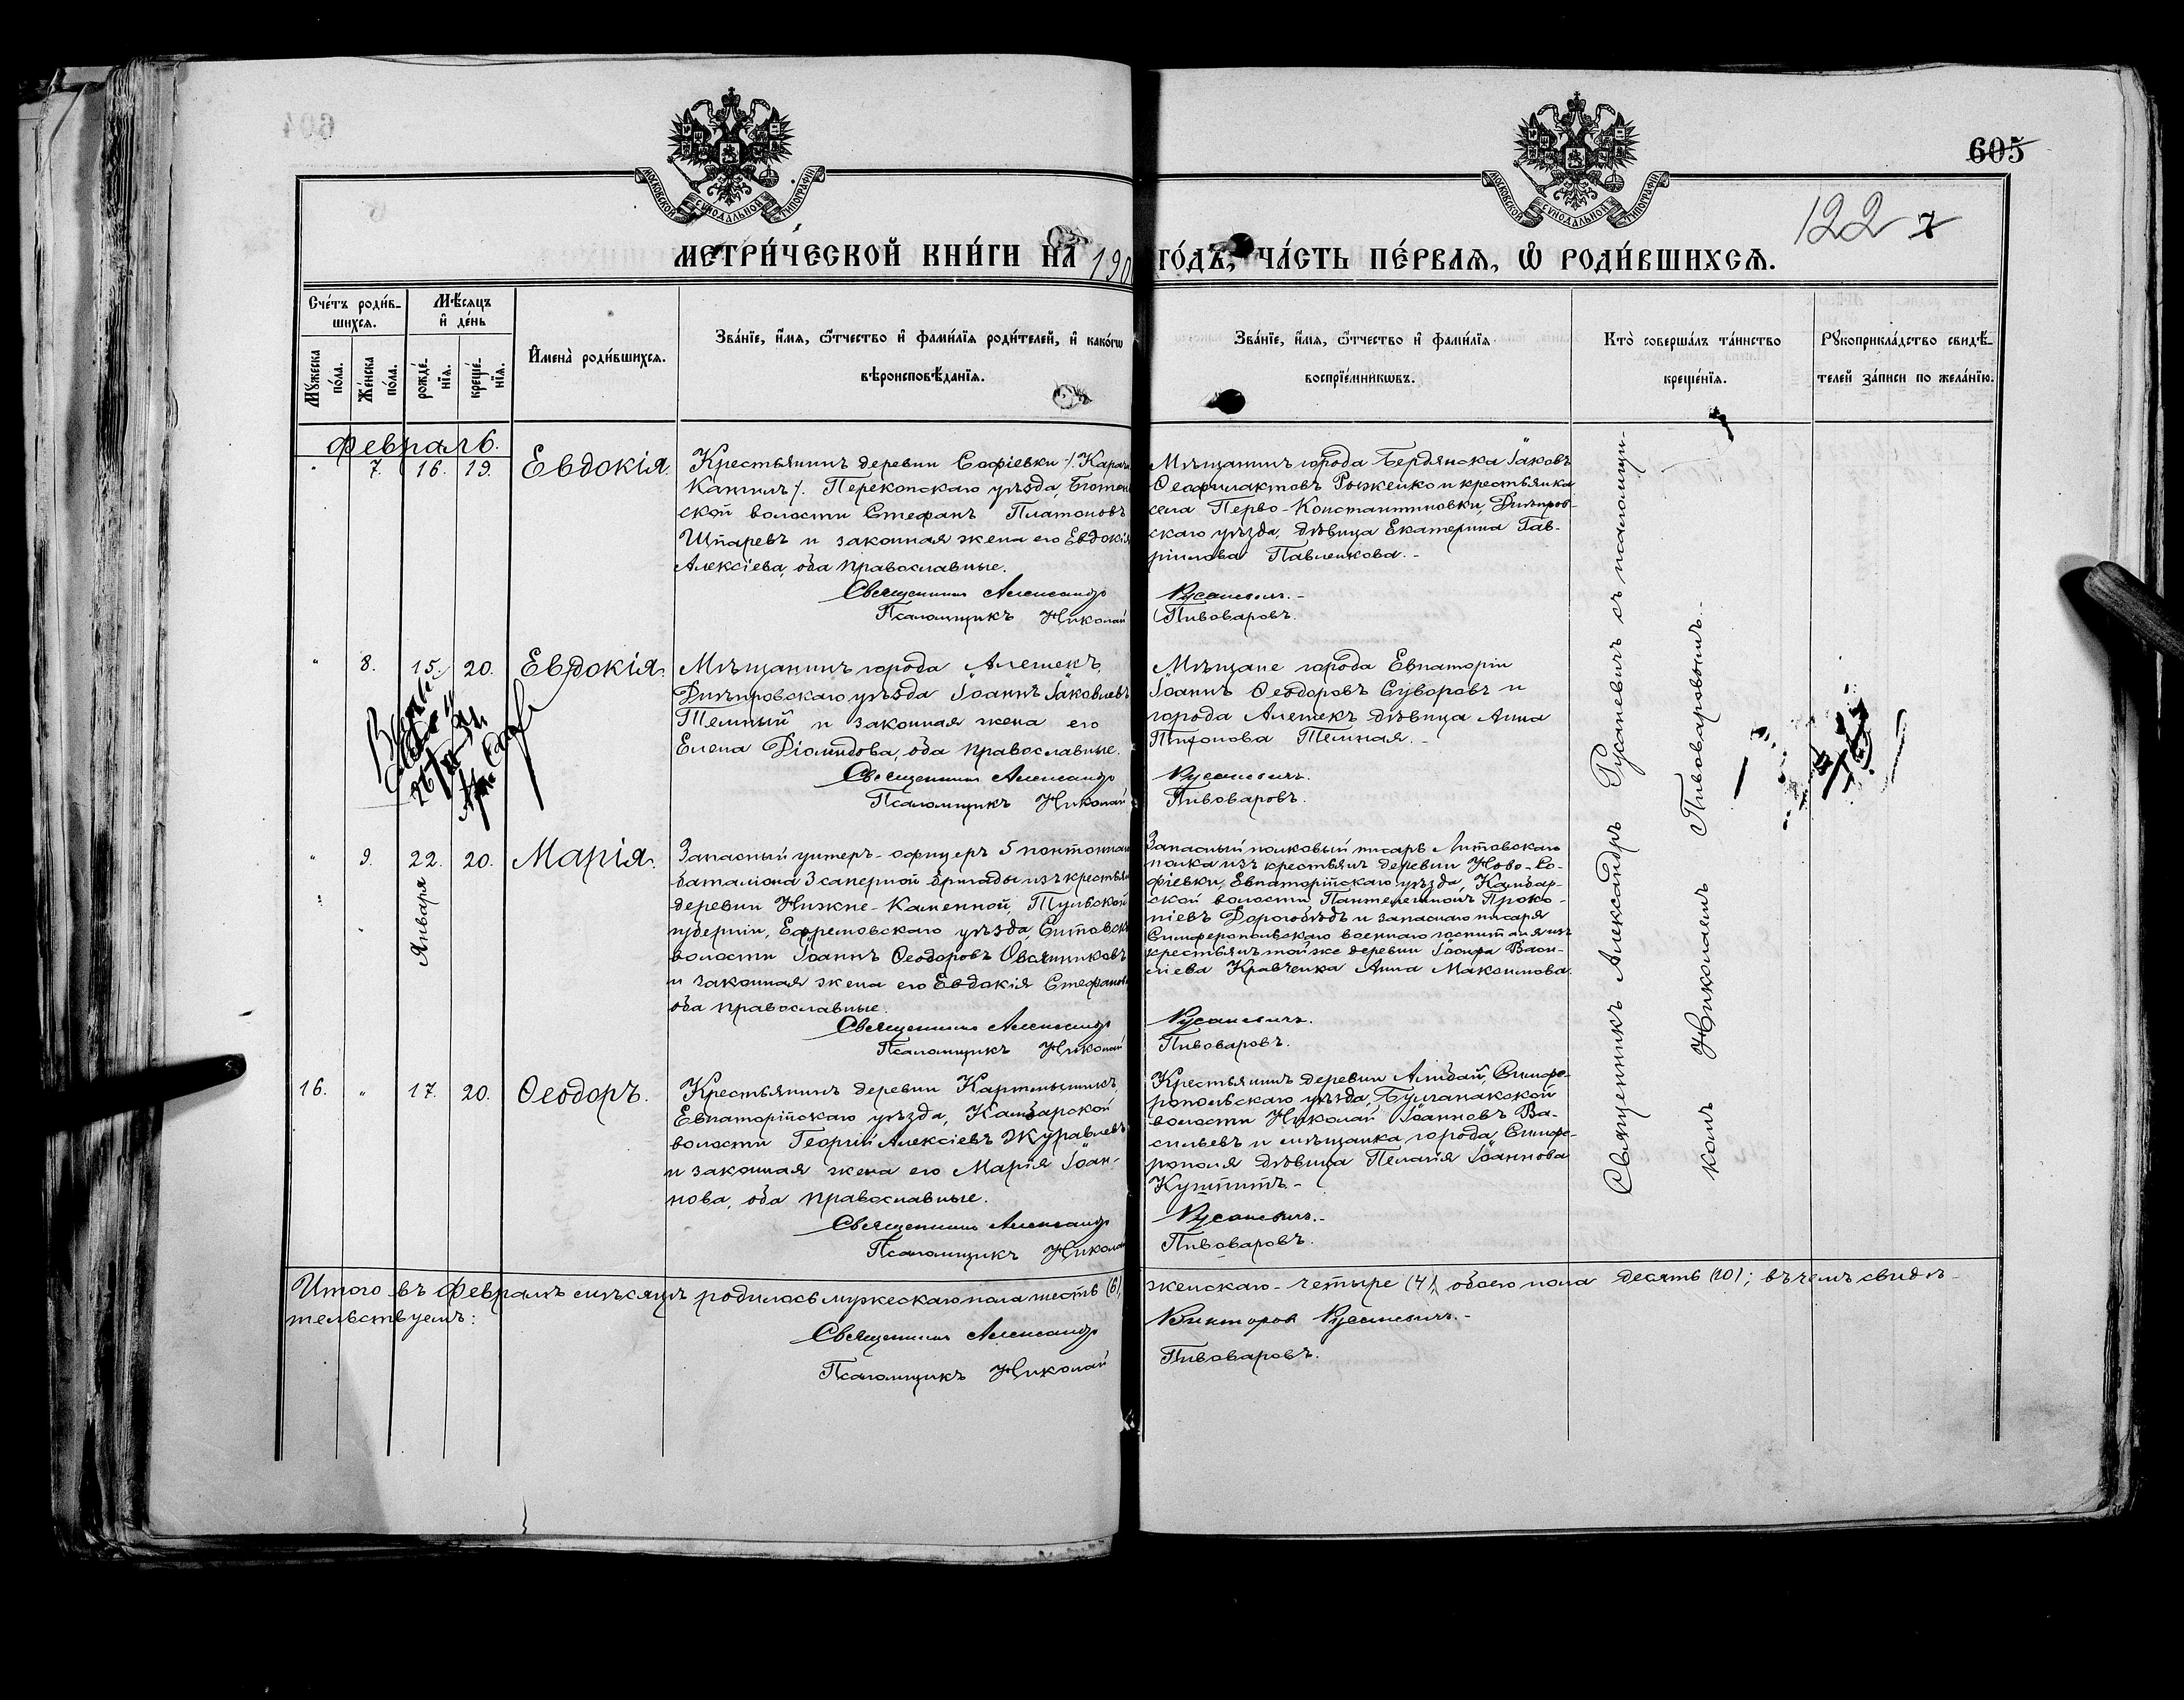 605
122
МОСКОВСКОЙ СѴНОДАЛЬНОЙ ТИПОГРАФІИ
МОСКОВСКОЙ СѴНОДАЛЬНОЙ ТИПОГРАФІИ
МЕТРИ́ЧЕСКОЙ КНИ́ГИ НА 190 ГО́ДЪ, ЧА́СТЬ ПЕ́РВАЯ, Ѡ҆ РОДИ́ВШИХСЯ.
Сче́тъ роди́в-
шихсѧ.
Мꙋ́жеска по́ла.
Же́нска по́ла.
Мѣ́сяцъ
и҆ де́нь
рожде́-
нїѧ.
креще́-
нїѧ.
И҆мена̀ роди́вшихсѧ.
Зва́нїе, и҆́мѧ, ѻ҆́тчество и҆ фами́лїѧ роди́телей, и҆ како́гѡ
вѣроисповѣ́данїѧ.
Зва́нїе, и҆́мѧ, ѻ҆́тчество и҆ фами́лїѧ
воспрїе́мникѡвъ.
Кто̀ соверша́лъ та́инство
креще́нїѧ.
Рꙋкоприкла́дство свидѣ́-
телей за́писи по жела́нїю.
Февраль.
" 7. 16. 19. Евдокія.
Крестьянинъ деревни Софіевки /. Карача
Кангилъ/. Перекопскаго уѣзда,
ской волости Стефанъ Платоновъ
Шпаревъ и законная жена его Евдокія
Алексіева, оба православные.
Священникъ Александръ
Псаломщикъ Николай
Мѣщанинъ города Бердянска Іаковъ
Ѳеофилактовъ Рыженко и крестьянка
села Перво-Константиновки, Днѣпров-
скаго уѣзда, дѣвица Екатерина Гав-
ріилова Павленкова.-
Русаневичъ.-
Пивоваровъ.
" 8. 15. 20. Евдокія.
Мѣщанинъ города Алешекъ,
Днѣпровскаго уѣзда Іоаннъ Іаковлевъ
Темный и законная жена его
Елена Діомидова, оба православные.
Священникъ Александръ
Псаломщикъ Николай
Мѣщане города Евпаторіи
Іоаннъ Ѳеодоровъ Суворовъ и
города Алешекъ дѣвица Анна
Тихонова Темная.-
Русаневичъ.
Пивоваровъ.
" 9. 22. 20. Марія.
Января
Запасный унтеръ-офицеръ 5 понтоннаго
баталіона 3 саперной бригады изъ крестьянъ
деревни Нижне-Каменной, Тульской
губерніи, Ефремовскаго уѣзда,
волости Іоаннъ Ѳеодоровъ Овсянниковъ
и законная жена его Евдокія Стефанова
оба православные.
Священникъ Александръ
Псаломщикъ Николай
Запасный полковый писарь Литовскаго
полка изъ крестьянъ деревни Ново-Со-
фіевки, Евпаторійскаго уѣзда, Камбар-
ской волости Пантелеимонъ Проко-
піевъ Дорогобѣдъ и запаснаго писаря
Симферопольскаго военнаго госпиталя изъ
крестьянъ той же деревни Іосифа Васи-
ліева Кравченка Анна Максимова.
Русаневичъ.
Пивоваровъ.
16. " 17. 20. Ѳеодоръ.
Крестьянинъ деревни
Евпаторійскаго уѣзда, Камбарской
волости Георгій Алексіевъ Журавлевъ
и законная жена его Марія Іоан-
нова, оба православные.
Священникъ Александръ
Псаломщикъ Николай
Крестьянинъ деревни Алибай, Симфе-
ропольскаго уѣзда, Булганакской
волости Николай Іоанновъ Ва-
сильевъ и мѣщанка города Симфе-
рополя дѣвица Пелагія Іоаннова
Русаневичъ.-
Пивоваровъ.
Священникъ Александръ Русаневичъ съ псаломщи-
комъ Николаемъ Пивоваровымъ.-
Итого въ Февралѣ мѣсяцѣ родилось мужескаго пола шесть (6), женскаго-четыре (4), обоего пола десять (10); въ чемъ свидѣ-
тельствуемъ:
Священникъ Александръ Викторовъ Русаневичъ.-
Псаломщикъ Николай Пивоваровъ.